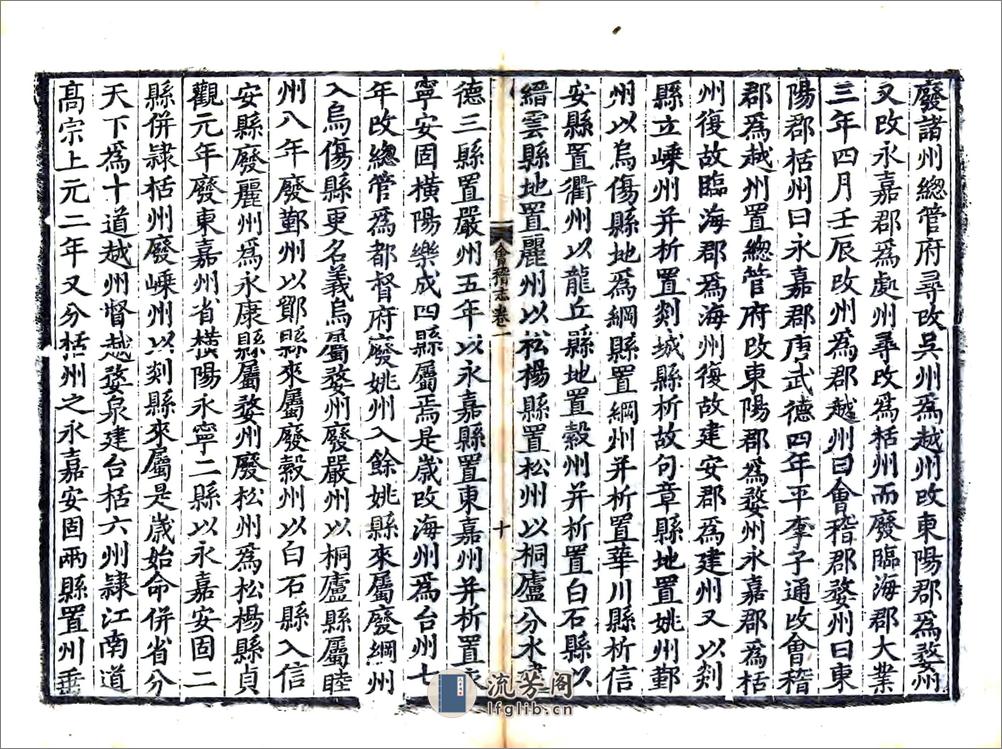 廢諸州總管府尋改吳州爲越州改東陽郡爲婺州
又改永嘉郡爲處州尋改爲栝州而廢臨海郡大業
三年四月壬辰改州爲郡越州曰會稽郡婺州曰東
陽郡栝州曰永嘉郡唐武德四年平李子通改會稽
郡爲越州置總管府改東陽郡爲婺州永嘉郡爲栝
州復故臨海郡爲海州復故建安郡爲建州又以剡
縣立嵊州并析置剡城縣析故句章縣地置姚州鄞
州以烏傷縣地爲綱縣置綱州并析置華川縣析信
安縣置衢州以龍丘縣地置穀州并析置白石縣以
縉雲縣地置麗州以松楊縣置松州以桐廬分水
德三縣置嚴州五年以永嘉縣置東嘉州并析置永
寧安固橫陽樂成四縣屬焉是歲改海州爲台州七
年改總管爲都督府廢姚州入餘姚縣來屬廢綱州
入烏傷縣更名義烏屬婺州廢嚴州以桐廬縣屬睦
州八年廢鄞州以鄮縣來屬廢穀州以白石縣入信
安縣廢麗州爲永康縣屬婺州廢松州爲松楊縣貞
觀元年廢東嘉州省橫陽永寧二縣以永嘉安固二
縣併隸栝州廢嵊州以剡縣來屬是歲始命併省分
天下爲十道越州督越婺泉建台栝六州隸江南道
高宗上元二年又分栝州之永嘉安固兩縣置州垂
會稽志卷一
十
流芳閣
lfglib.cn